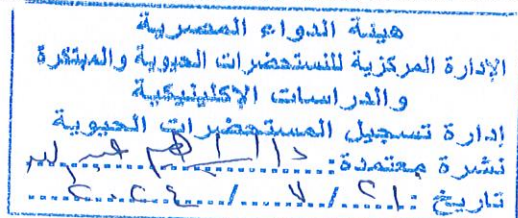 هيئة الدواء المصرية
الإدارة المركزية للمستحضرات الحيوية والمبتكرة
والدراسات الإكلينيكية
إدارة تسجيل المستحضرات الحيوية
نشرة معتمدة: د/
تاريخ: ٢١ / ٧ / ٢٠٢٤